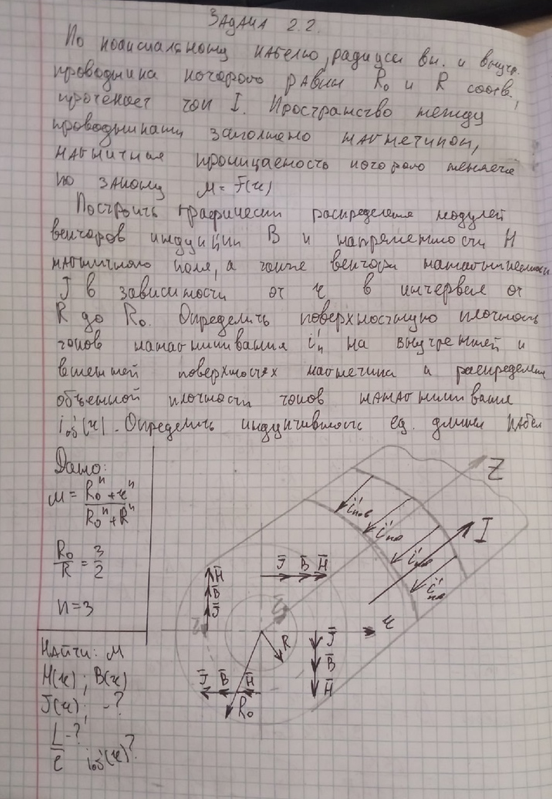 ЗАДАЧА 2.2.
По коаксиальному кабелю, радиусы вн. и внутр.
проводника которого равны R₀ и R соотв.,
протекает ток I. Пространство между
проводниками заполнено магнетиком,
магнитная проницаемость которого меняется
по закону μ = f(r)
Построить графически распределения модулей
векторов индукции B и напряжённости H
магнитного поля, а также вектора намагниченности
J в зависимости от r в интервале от
R до R₀. Определить поверхностную плотность
токов намагничивания i'п на внутренней и
внешней поверхностях магнетика и распределение
объёмной плотности токов намагничивания
i'об(r). Определить индуктивность ед. длины кабеля
Дано:
μ = (R₀ⁿ + rⁿ)/(R₀ⁿ + Rⁿ)
R₀/R = 3/2
n = 3
Найти: μ
H(r); B(r)
J(r) - ?
L/ℓ - ?
i'об(r)?
Z
I
r
R
R₀
J B H
H
B
J
J
B
H
J B H
i'пов
i'пов
i'пов
i'пов